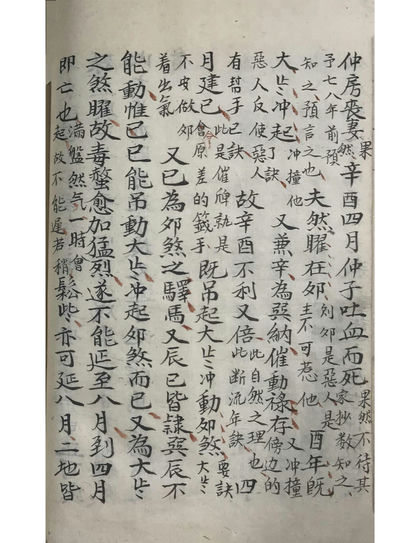 仲房喪妻果然辛酉四月仲子吐血而死果然不待其
予七八年前預知之預言之也夫然曜在卯刻卯是惡人是主不可惹他酉年既
大歲冲起了訣又兼辛為巽納催動祿存傍边的
惡人反使惡人有幇手已訣故辛酉不利又倍此自然之理也此断流年訣四
月建巳此是催牌執是會原差的籤手既吊起大歲冲動卯煞大歲要訣
不安做卯着出氣又巳為卯煞之驛馬又辰巳皆隷巽辰不
能動惟巳巳能吊動大歲冲起卯煞而巳又為大歲
之煞曜故毒螫愈加猛烈遂不能延至八月到四月
即亡也滿盤煞气一時會起故不能遲若稍鬆些亦可延八月二地皆